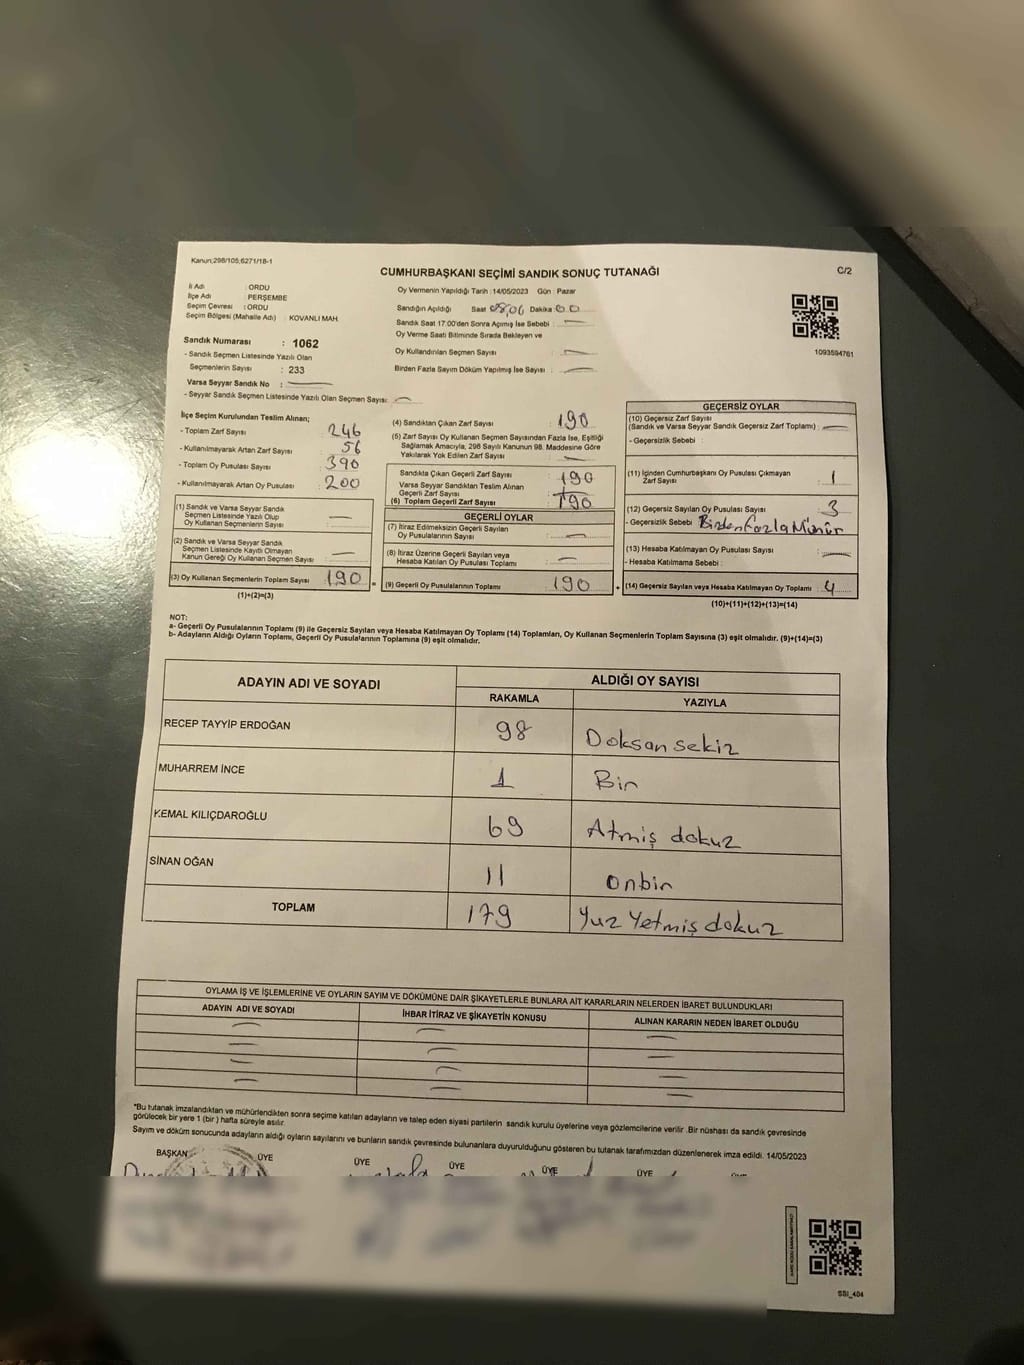 Kanun;298/105;6271/18-1
CUMHURBAŞKANI SEÇİMİ SANDIK SONUÇ TUTANAĞI
C/2
İl Adı : ORDU
İlçe Adı : PERŞEMBE
Seçim Çevresi : ORDU
Seçim Bölgesi (Mahalle Adı) : KOVANLI MAH.
Sandık Numarası : 1062
- Sandık Seçmen Listesinde Yazılı Olan
Seçmenlerin Sayısı : 233
Varsa Seyyar Sandık No :
- Seyyar Sandık Seçmen Listesinde Yazılı Olan Seçmen Sayısı:
Oy Vermenin Yapıldığı Tarih :14/05/2023 Gün : Pazar
Sandığın Açıldığı Saat 08,06 Dakika 00
Sandık Saat 17:00'den Sonra Açımış İse Sebebi :
Oy Verme Saati Bitiminde Sırada Bekleyen ve
Oy Kullandırılan Seçmen Sayısı :
Birden Fazla Sayım Döküm Yapılmış İse Sayısı :
1093594761
İlçe Seçim Kurulundan Teslim Alınan;
- Toplam Zarf Sayısı : 246
- Kullanılmayarak Artan Zarf Sayısı : 56
- Toplam Oy Pusulası Sayısı : 390
- Kullanılmayarak Artan Oy Pusulası : 200
(1) Sandık ve Varsa Seyyar Sandık
Seçmen Listesinde Yazılı Olup
Oy Kullanan Seçmenlerin Sayısı :
(2) Sandık ve Varsa Seyyar Sandık
Seçmen Listesinde Kayıtlı Olmayan
Kanun Gereği Oy Kullanan Seçmen Sayısı :
(3) Oy Kullanan Seçmenlerin Toplam Sayısı : 190 =
(1)+(2)=(3)
(4) Sandıktan Çıkan Zarf Sayısı : 190
(5) Zarf Sayısı Oy Kullanan Seçmen Sayısından Fazla İse, Eşitliği
Sağlamak Amacıyla, 298 Sayılı Kanunun 98. Maddesine Göre
Yakılarak Yok Edilen Zarf Sayısı :
Sandıkta Çıkan Geçerli Zarf Sayısı : 190
Varsa Seyyar Sandıktan Teslim Alınan
Geçerli Zarf Sayısı :
(6) Toplam Geçerli Zarf Sayısı : 190
GEÇERLİ OYLAR
(7) İtiraz Edilmeksizin Geçerli Sayılan
Oy Pusulalarının Sayısı :
(8) İtiraz Üzerine Geçerli Sayılan veya
Hesaba Katılan Oy Pusulası Toplamı :
(9) Geçerli Oy Pusulalarının Toplamı : 190 +
GEÇERSİZ OYLAR
(10) Geçersiz Zarf Sayısı
(Sandık ve Varsa Seyyar Sandık Geçersiz Zarf Toplamı) :
- Geçersizlik Sebebi :
(11) İçinden Cumhurbaşkanı Oy Pusulası Çıkmayan
Zarf Sayısı : 1
(12) Geçersiz Sayılan Oy Pusulası Sayısı : 3
- Geçersizlik Sebebi : Birden fazla Mühür
(13) Hesaba Katılmayan Oy Pusulası Sayısı :
- Hesaba Katılmama Sebebi :
(14) Geçersiz Sayılan veya Hesaba Katılmayan Oy Toplamı : 4
(10)+(11)+(12)+(13)=(14)
NOT:
a- Geçerli Oy Pusulalarının Toplamı (9) ile Geçersiz Sayılan veya Hesaba Katılmayan Oy Toplamı (14) Toplamları, Oy Kullanan Seçmenlerin Toplam Sayısına (3) eşit olmalıdır. (9)+(14)=(3)
b- Adayların Aldığı Oyların Toplamı, Geçerli Oy Pusulalarının Toplamına (9) eşit olmalıdır.
ADAYIN ADI VE SOYADI
ALDIĞI OY SAYISI
RAKAMLA YAZIYLA
RECEP TAYYİP ERDOĞAN 98 Doksan sekiz
MUHARREM İNCE 1 Bir
KEMAL KILIÇDAROĞLU 69 Atmış dokuz
SİNAN OĞAN 11 onbir
TOPLAM 179 Yuz Yetmiş dokuz
OYLAMA İŞ VE İŞLEMLERİNE VE OYLARIN SAYIM VE DÖKÜMÜNE DAİR ŞİKAYETLERLE BUNLARA AİT KARARLARIN NELERDEN İBARET BULUNDUKLARI
ADAYIN ADI VE SOYADI İHBAR İTİRAZ VE ŞİKAYETİN KONUSU ALINAN KARARIN NEDEN İBARET OLDUĞU
*Bu tutanak imzalandıktan ve mühürlendikten sonra seçime katılan adayların ve talep eden siyasi partilerin sandık kurulu üyelerine veya gözlemcilerine verilir .Bir nüshası da sandık çevresinde
görülecek bir yere 1 (bir ) hafta süreyle asılır.
Sayım ve döküm sonucunda adayların aldığı oyların sayılarını ve bunların sandık çevresinde bulunanlara duyurulduğunu gösteren bu tutanak tarafımızdan düzenlenerek imza edildi. 14/05/2023
BAŞKAN ÜYE ÜYE ÜYE ÜYE ÜYE
SSI_404